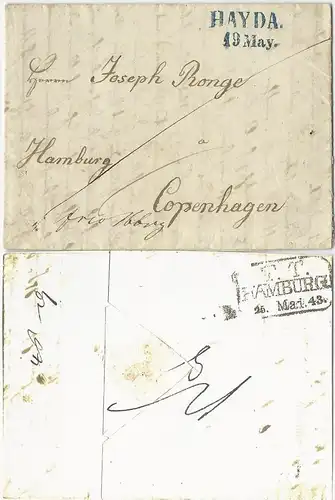 HAYDA.
19 May.
Herrn Joseph Ronge
Hamburg
a
Copenhagen
T. T.
HAMBURG
25. Mai. 43.